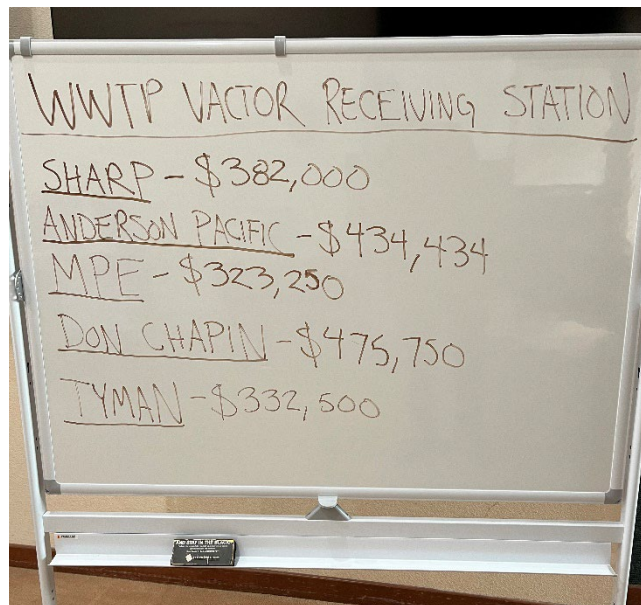 WWTP VACTOR RECEIVING STATION
SHARP - $382,000
ANDERSON PACIFIC - $434,434
MPE - $323,250
DON CHAPIN - $475,750
TYMAN - $332,500